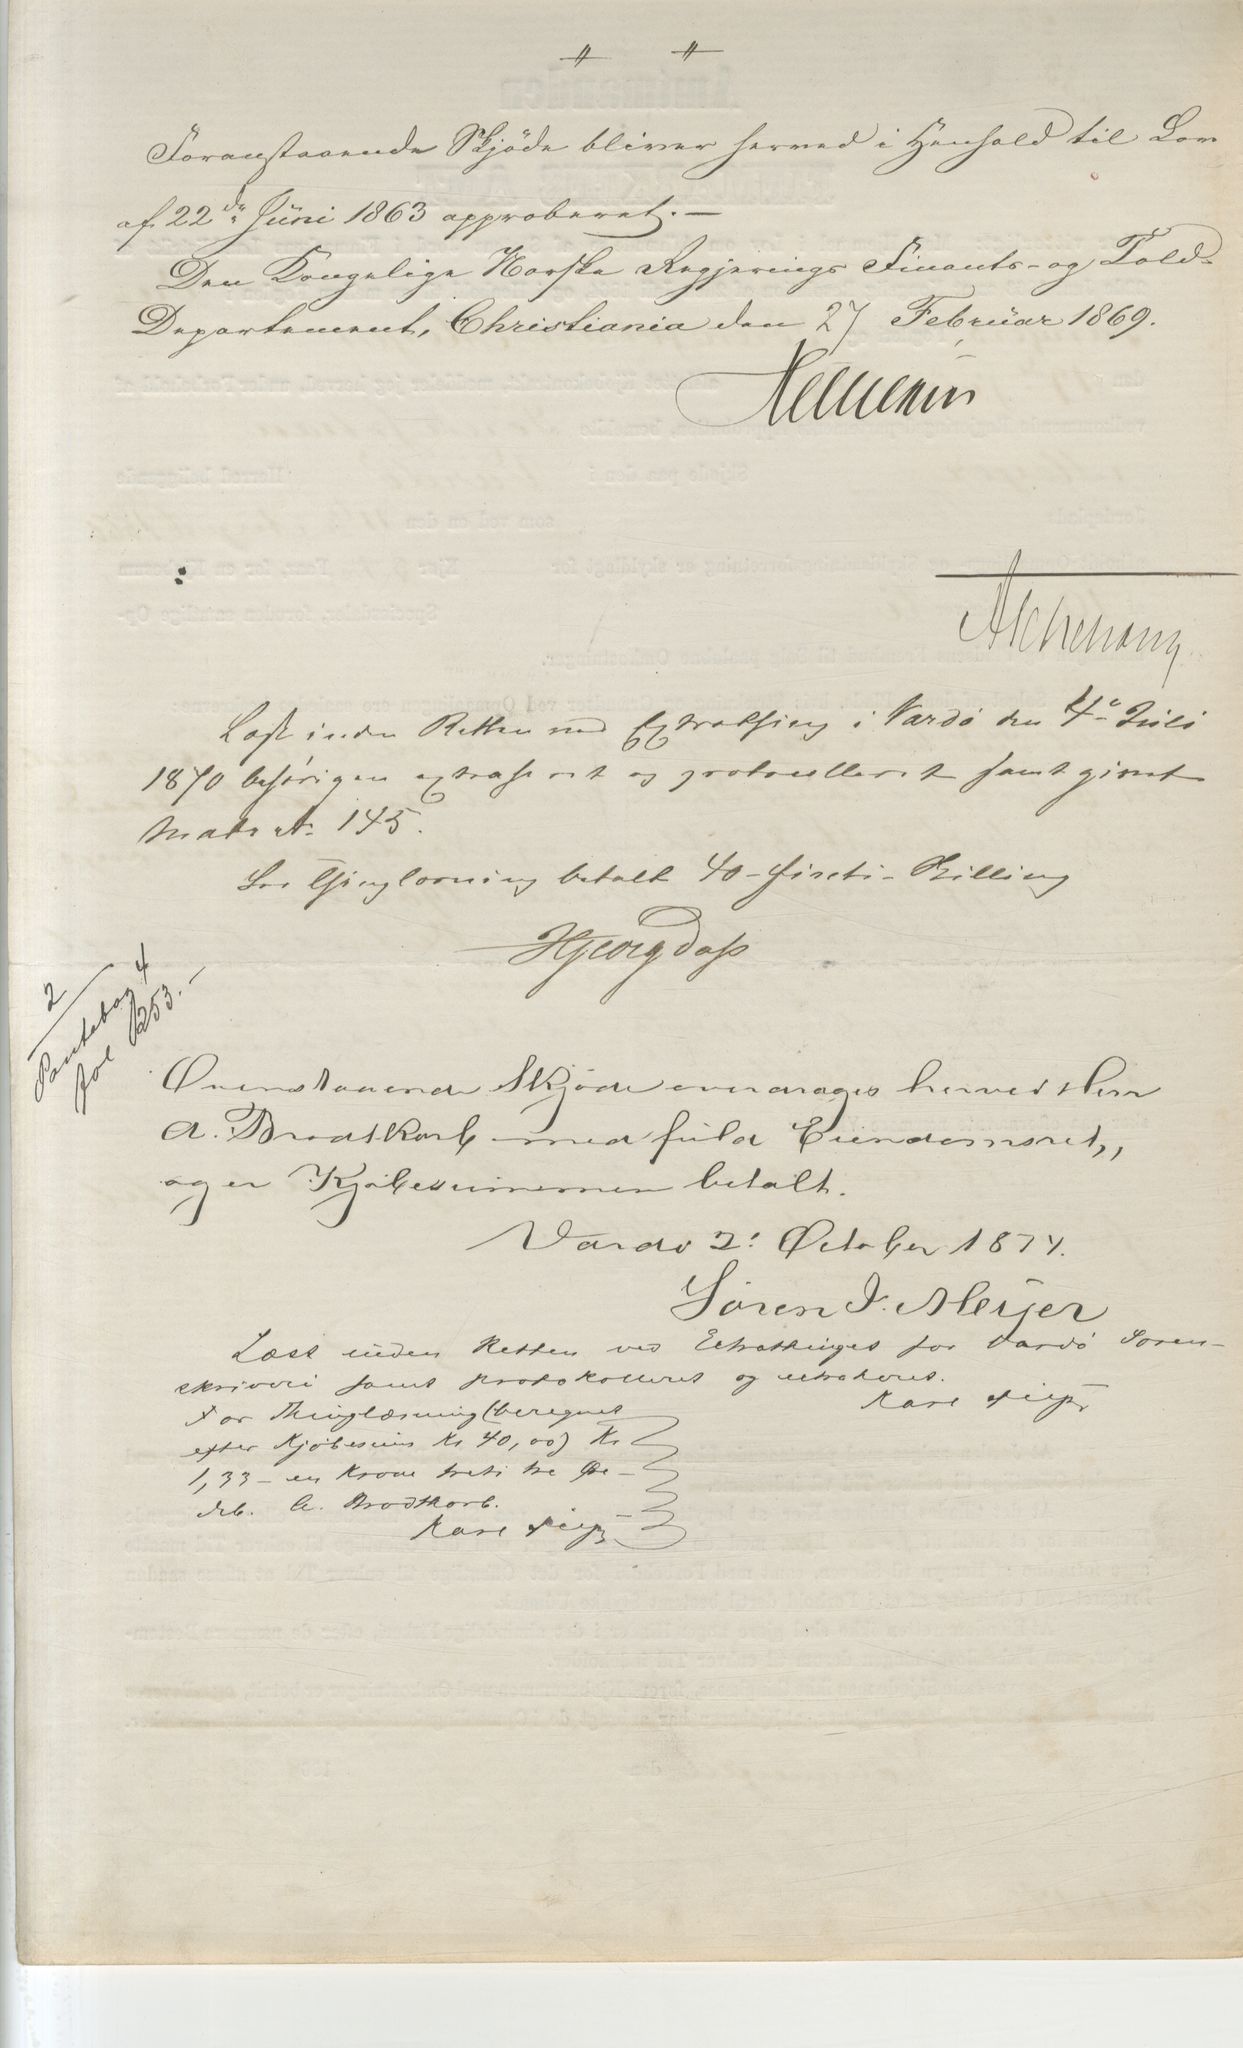 Foranstaaende Skjöde bliver herved i Henhold til Lov
af 22de Juni 1863 approberet. —
Den Kongelige Norske Regjerings Finants- og Told-
Departement, Christiania den 27 Februar 1869.
Læst inden Retten ved Extrathing i Vardö den 4de Juli
1870 behörigen extraheret og protocolleret samt givet
Matr. No 145.
For Thinglæsning betalt 40 - fireti - Skilling
2
Pantebog 4
fol 1253. —
Ovenstaaende Skjöde overdrages herved Herr
A. Brodtkorb med fuld Eiendomsret,,
og er Kjöbesummen betalt.
Vardö 2: October 1874.
Sören J. Meijer
Læst inden Retten ved Extrathinget for Vardö Soren-
skriveri samt protokolleret og extraheret.
For Thinglæsning (beregnet
efter Kjöbesum Kr 40,00) Kr
1,33 – en Krone treti tre Øre –
deb. A. Brodtkorb.